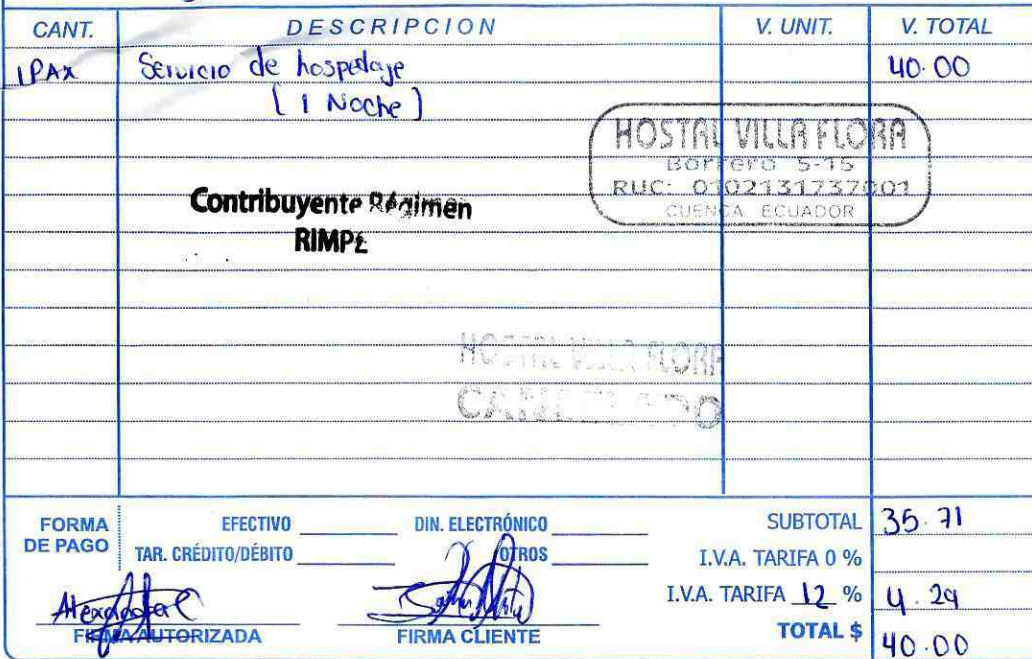 CANT. DESCRIPCION V. UNIT. V. TOTAL
1 PAX Servicio de hospedaje 40.00
[ 1 Noche ]
HOSTAL VILLA FLORA
Borrero 5-15
RUC: 0102131737001
CUENCA ECUADOR
Contribuyente Régimen
RIMPE
HOSTAL VILLA FLORA
CANCELADO
FORMA DE PAGO
EFECTIVO DIN. ELECTRÓNICO
TAR. CRÉDITO/DÉBITO OTROS
SUBTOTAL 35.71
I.V.A. TARIFA 0 %
I.V.A. TARIFA 12 % 4.29
TOTAL $ 40.00
FIRMA AUTORIZADA FIRMA CLIENTE